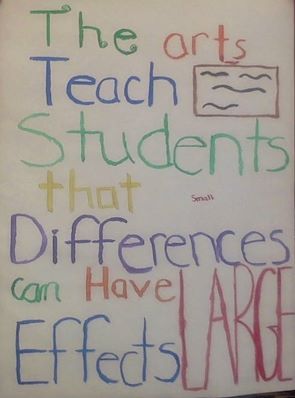 The arts
Teach
Students
that small
Differences
can Have LARGE
Effects